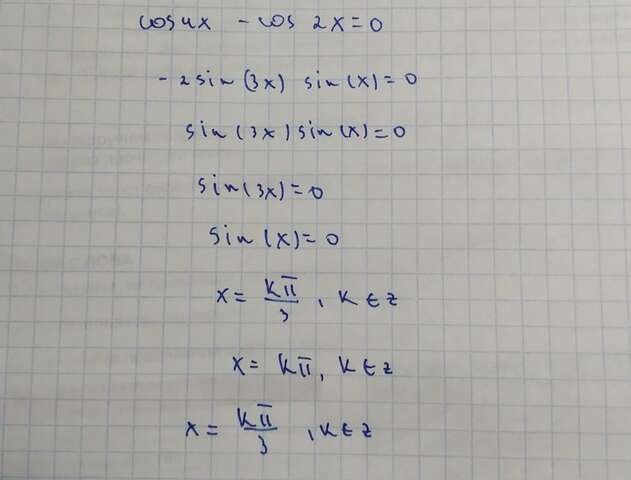 cos4x - cos 2x = 0
-2sin(3x) sin(x) = 0
sin(3x)sin(x) = 0
sin(3x) = 0
sin(x) = 0
x = kπ/3, k ∈ z
x = kπ, k ∈ z
x = kπ/3, k ∈ z